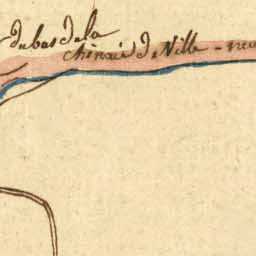 du bas de la
Chenaie de Ville-neu